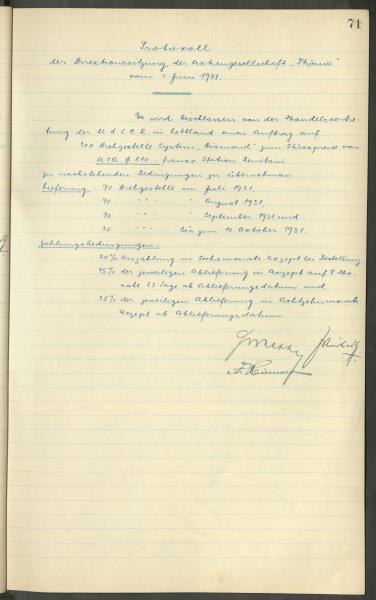 71
Protokoll
der Direktionssitzung der Aktiengesellschaft „Phönix"
vom 1. Juni 1931.
Es wird beschlossen von der Handelsvertre-
tung der U.d.S.S.R. in Lettland einen Auftrag auf
300 Drehgestelle System „Diamond" zum Stückpreise von
USA $ 510.- franko Station
zu nachstehenden Bedingungen zu übernehmen.
Lieferung: 90 Drehgestelle im Juli 1931,
90 " " August 1931,
90 " " September 1931 und
30 " bis zum 10. Oktober 1931.
Zahlungsbedingungen:
20% Anzahlung in Sechsmonats-Akzept bei Bestellung
45% der jeweiligen Ablieferung in Akzept auf 8 Mo-
nate 23 Tage ab Ablieferungsdatum und
35% der jeweiligen Ablieferung in Achtzehnmonats-
Akzept ab Ablieferungsdatum.